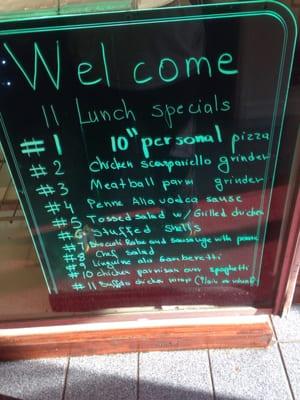 Welcome
11 Lunch specials
#1 10" personal pizza
#2 chicken scarpariello grinder
#3 Meatball parm grinder
#4 Penne Alla vodca sause
#5 Tossed salad w/ Gilled chicken
#6 Stuffed shells
#7 Brocoli Rabe and sausage with penne
#8 Chef salad
#9 Linguine ala Gamberetti
#10 chicken parmisan over spaghetti
#11 Buffalo chicken wrap (Plain or wheat)